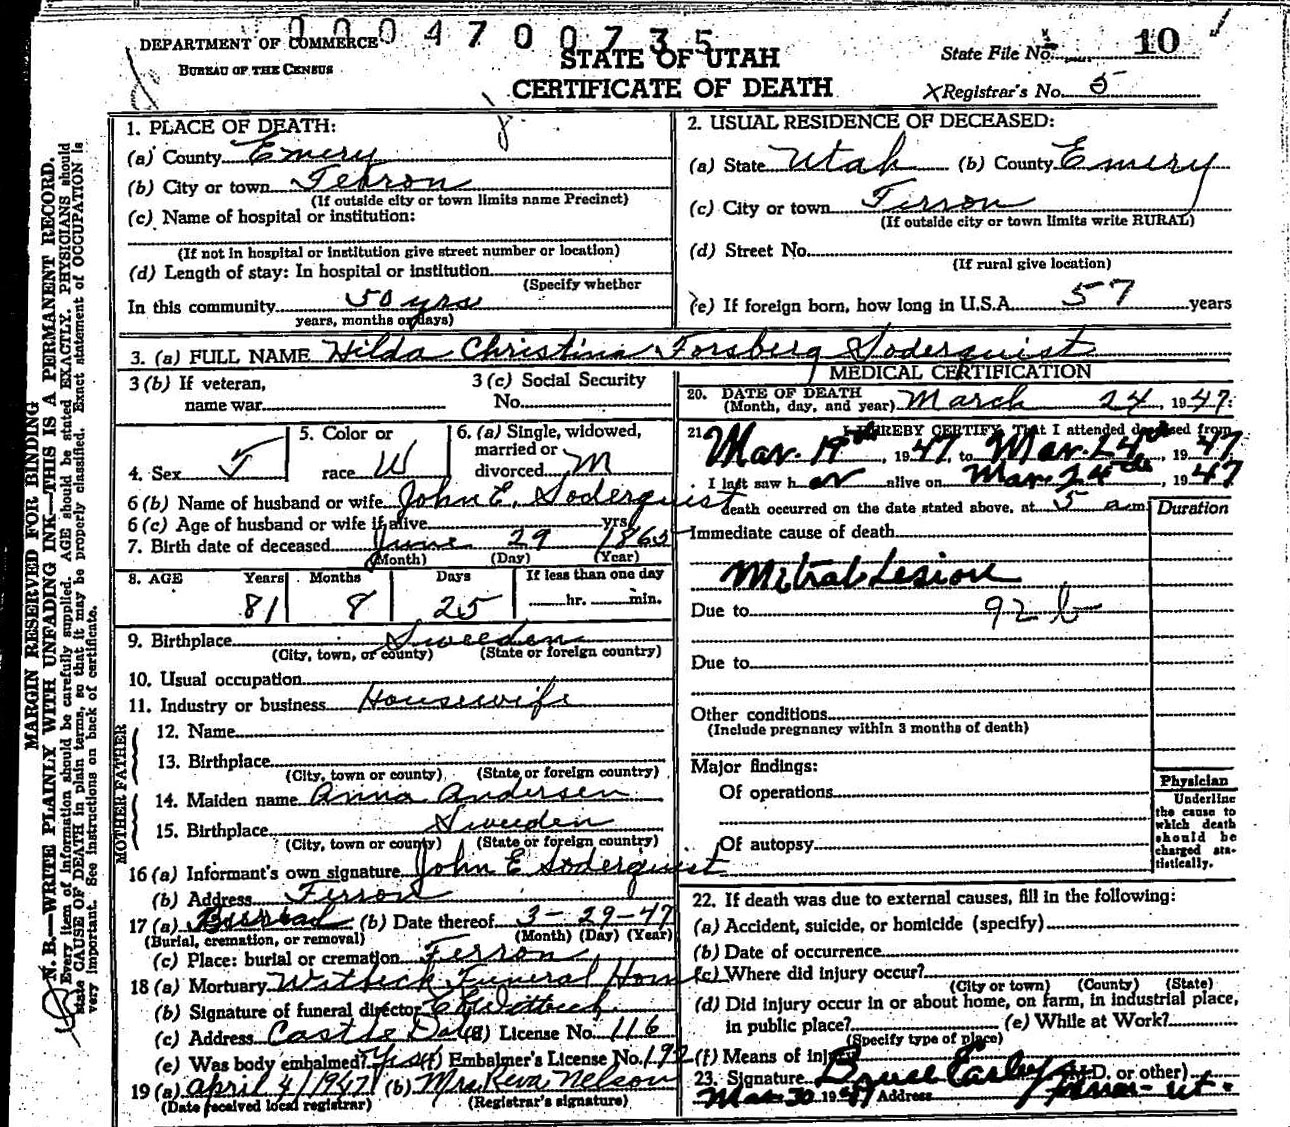 000470 0735
DEPARTMENT OF COMMERCE
BUREAU OF THE CENSUS
STATE OF UTAH
CERTIFICATE OF DEATH
State File No. 10
X Registrar's No. 5
MARGIN RESERVED FOR BINDING
N. B.—WRITE PLAINLY WITH UNFADING INK—THIS IS A PERMANENT RECORD.
Every item of information should be carefully supplied. AGE should be stated EXACTLY. PHYSICIANS should
state CAUSE OF DEATH in plain terms, so that it may be properly classified. Exact statement of OCCUPATION is
very important. See instructions on back of certificate.
1. PLACE OF DEATH:
(a) County Emery
(b) City or town Ferron
(If outside city or town limits name Precinct)
(c) Name of hospital or institution:
(If not in hospital or institution give street number or location)
(d) Length of stay: In hospital or institution
(Specify whether
In this community 50 yrs
years, months or days)
2. USUAL RESIDENCE OF DECEASED:
(a) State Utah (b) County Emery
(c) City or town Ferron
(If outside city or town limits write RURAL)
(d) Street No.
(If rural give location)
(e) If foreign born, how long in U.S.A. 57 years
3. (a) FULL NAME Hilda Christina Forsberg Soderquist
3 (b) If veteran, name war
3 (c) Social Security No.
4. Sex F
5. Color or race W
6. (a) Single, widowed, married or divorced M
6 (b) Name of husband or wife John E. Soderquist
6 (c) Age of husband or wife if alive yrs.
7. Birth date of deceased June 29 1865
(Month) (Day) (Year)
8. AGE Years Months Days If less than one day
81 8 25 hr. min.
9. Birthplace Sweeden
(City, town, or county) (State or foreign country)
10. Usual occupation
11. Industry or business Housewife
FATHER
12. Name
13. Birthplace
(City, town or county) (State or foreign country)
MOTHER
14. Maiden name Anna Andersen
15. Birthplace Sweeden
(City, town or county) (State or foreign country)
16 (a) Informant's own signature John E Soderquist
(b) Address Ferron
17 (a) Burial (b) Date thereof 3-29-47
(Burial, cremation, or removal) (Month) (Day) (Year)
(c) Place: burial or cremation Ferron
18 (a) Mortuary Witbeck Funeral Home
(b) Signature of funeral director
(c) Address Castle Dale (d) License No. 116
(e) Was body embalmed? Yes (f) Embalmer's License No. 192
19 (a) April 4/1947 (b) Mrs. Reva Nelson
(Date received local registrar) (Registrar's signature)
MEDICAL CERTIFICATION
20. DATE OF DEATH
(Month, day, and year) March 24, 1947.
21. I HEREBY CERTIFY, That I attended deceased from
Mar. 19th, 1947, to Mar. 24th, 1947
I last saw her alive on Mar. 24th, 1947
death occurred on the date stated above, at 5 a m
Duration
Immediate cause of death
Mitral Lesion
Due to 92 b
Due to
Other conditions
(Include pregnancy within 3 months of death)
Major findings:
Of operations
Of autopsy
Physician
Underline
the cause to
which death
should be
charged sta-
tistically.
22. If death was due to external causes, fill in the following:
(a) Accident, suicide, or homicide (specify)
(b) Date of occurrence
(c) Where did injury occur?
(City or town) (County) (State)
(d) Did injury occur in or about home, on farm, in industrial place,
in public place? (e) While at Work?
(Specify type of place)
(f) Means of injury
23. Signature Bruce Easley (M. D. or other)
Mar 30 1947 Address Ferron Ut.